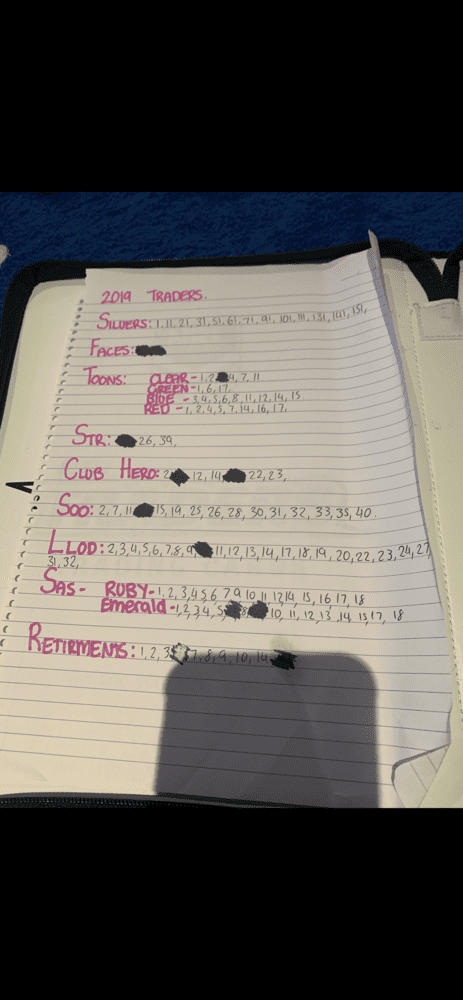 2019 TRADERS.
SILVERS: 1, 11, 21, 31, 51, 61, 71, 91, 101, 111, 131, 141, 151,
FACES:
TOONS: CLEAR - 1, 2 4, 7, 11
GREEN - 1, 6, 17.
BLUE - 3, 4, 5, 6, 8, 11, 12, 14, 15
RED - 1, 2, 4, 5, 7, 14, 16, 17.
STR: 26, 39,
CLUB HERO: 2 12, 14 22, 23,
SOO: 2, 7, 11 15, 19, 25, 26, 28, 30, 31, 32, 33, 35, 40
LLOD: 2, 3, 4, 5, 6, 7, 8, 9 11, 12, 13, 14, 17, 18, 19, 20, 22, 23, 24, 27
31, 32,
SAS - RUBY - 1, 2, 3, 4, 5, 6 7, 9, 10, 11, 12, 14, 15, 16, 17, 18
Emerald - 1, 2, 3, 4, 5, 8, 10, 11, 12, 13, 14, 15, 17, 18
RETIRMENTS: 1, 2, 3 7, 8, 9, 10, 14